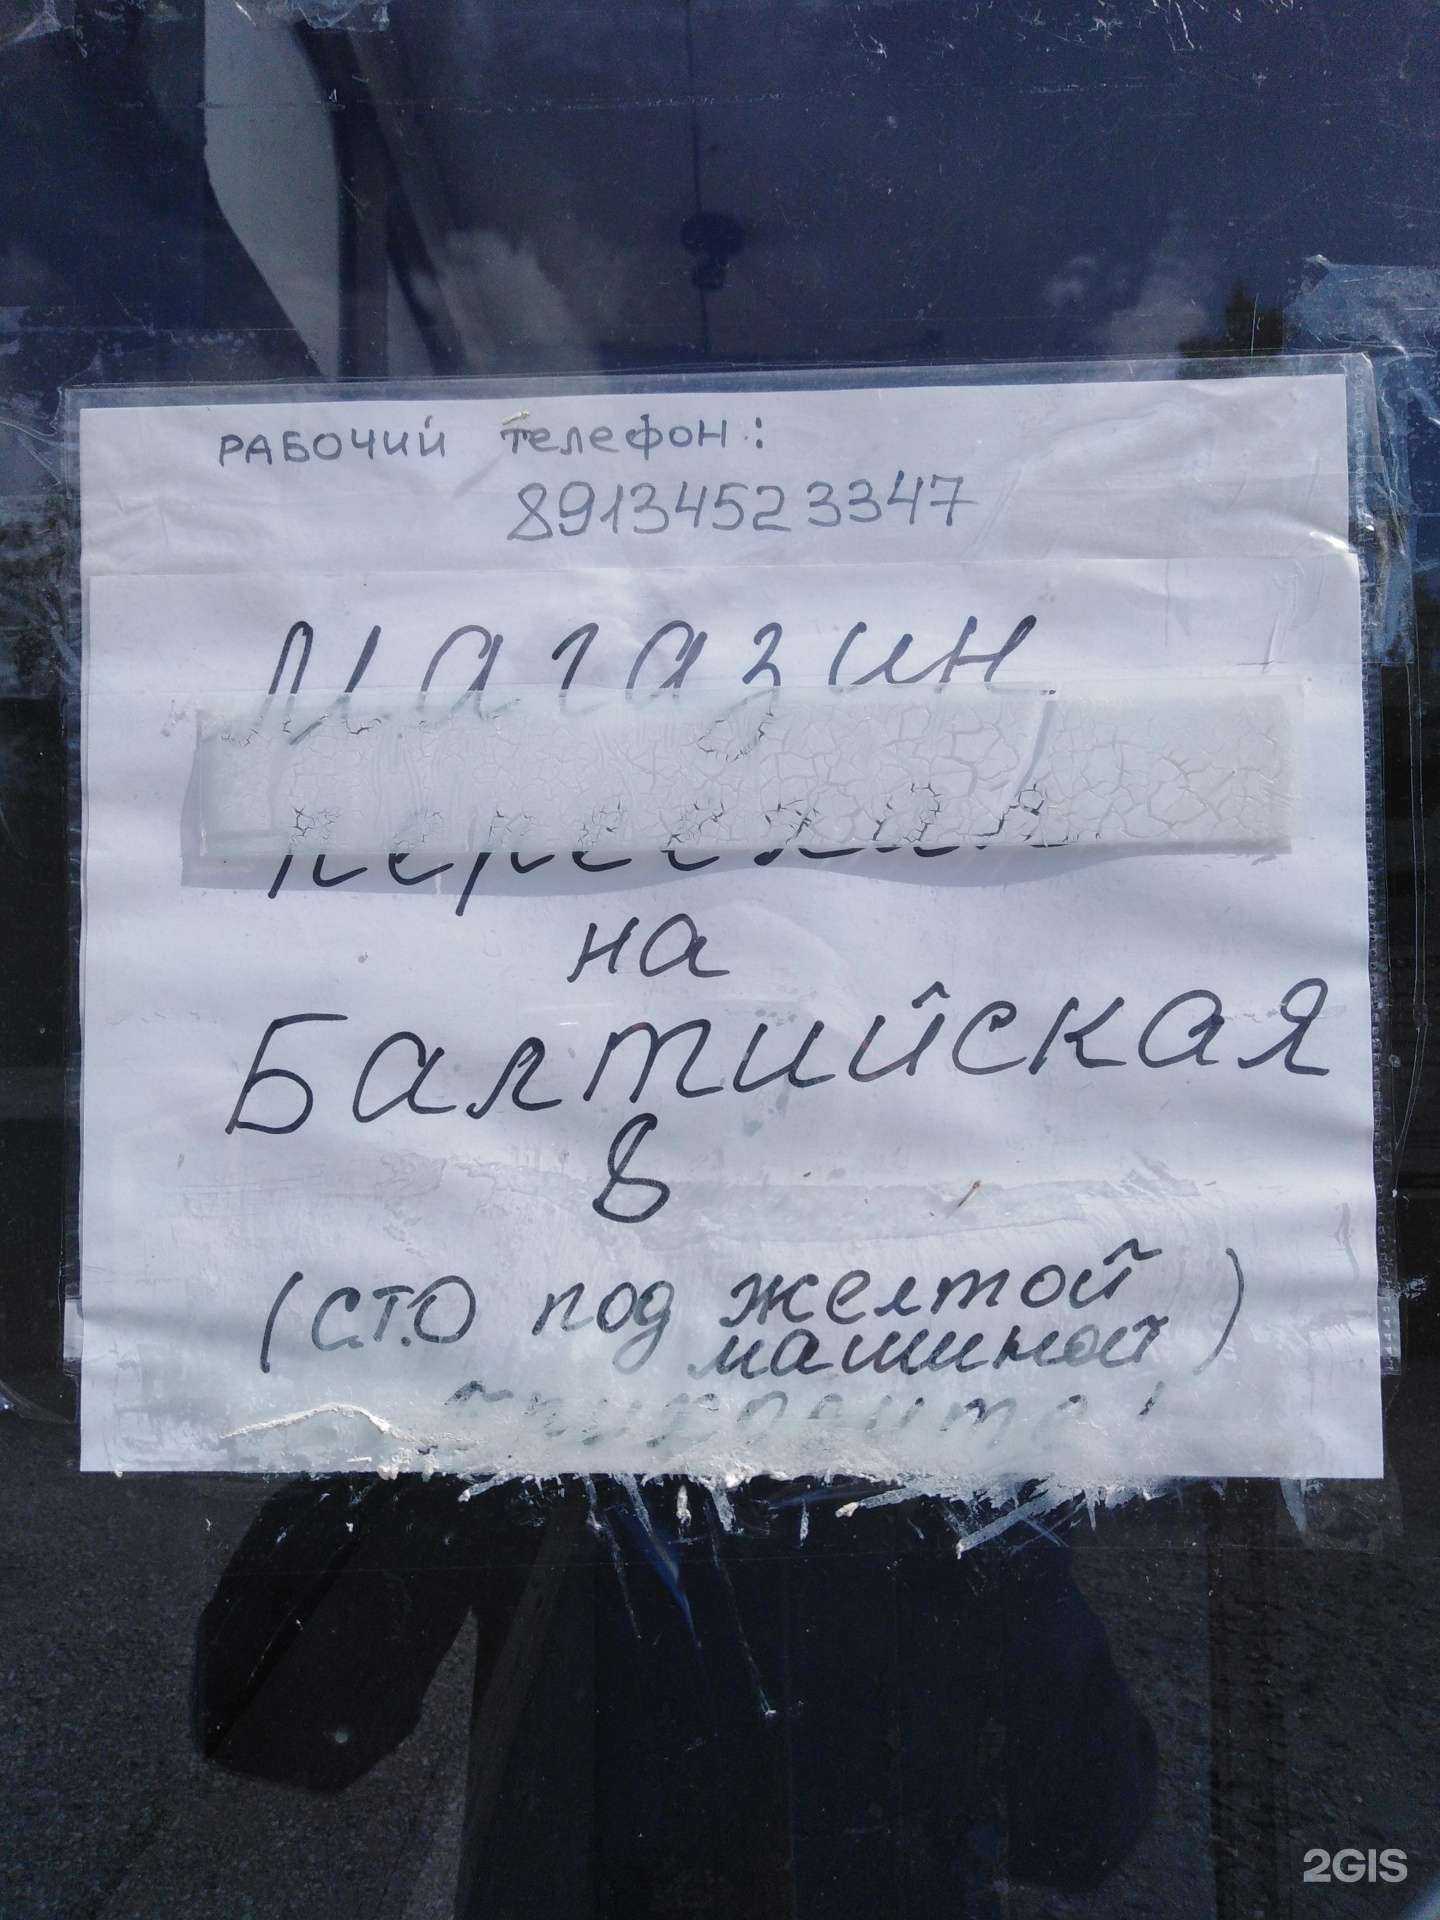 РАБОЧИЙ телефон:
89134523347
Магазин
переехал
на
Балтийская
8
(С.Т.О под желтой
машиной)
2GIS